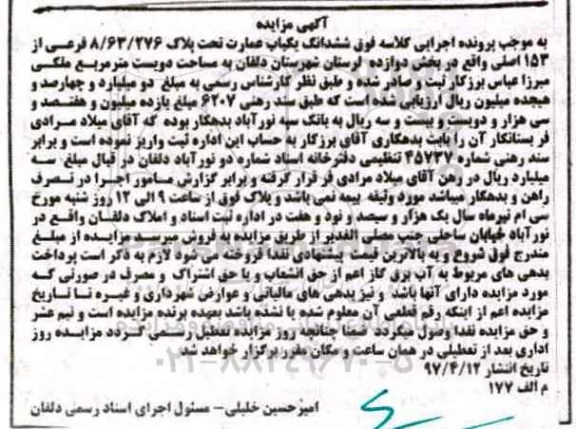 آگهی مزایده
به موجب پرونده اجرایی کلاسه فوق ششدانگ یکباب عمارت تحت پلاک ۸/۶۳/۲۷۶ فرعی از
۱۵۳ اصلی واقع در بخش دوازده لرستان شهرستان دلفان به مساحت دویست مترمربع ملکی
میرزا عباس برزکار ثبت و صادر شده و طبق نظر کارشناس رسمی به مبلغ دو میلیارد و چهارصد و
هیجده میلیون ریال ارزیابی شده است که طبق سند رهنی ۶۲۰۷ مبلغ یازده میلیون و هفتصد و
سی هزار و دویست و بیست و سه ریال به بانک سپه نورآباد بدهکار بوده که آقای میلاد مرادی
فر بستانکار آن را بابت بدهکاری آقای برزکار به حساب این اداره ثبت واریز نموده است و برابر
سند رهنی شماره ۴۵۷۳۷ تنظیمی دفترخانه اسناد شماره دو نورآباد دلفان در قبال مبلغ سه
میلیارد ریال در رهن آقای میلاد مرادی فر قرار گرفته و برابر گزارش مامور اجرا در تصرف
راهن و بدهکار میباشد مورد وثیقه بیمه نمی باشد و پلاک فوق از ساعت ۹ الی ۱۲ روز شنبه مورخ
سی ام تیرماه سال یک هزار و سیصد و نود و هفت در اداره ثبت اسناد و املاک دلفان واقع در
نورآباد خیابان ساحلی جنب مصلی الغدیر از طریق مزایده به فروش میرسد مزایده از مبلغ
مندرج فوق شروع و به بالاترین قیمت پیشنهادی نقدا فروخته می شود لازم به ذکر است پرداخت
بدهی های مربوط به آب برق گاز اعم از حق انشعاب و یا حق اشتراک و مصرف در صورتی که
مورد مزایده دارای آنها باشد و نیز بدهی های مالیاتی و عوارض شهرداری و غیره تا تاریخ
مزایده اعم از اینکه رقم قطعی آن معلوم شده یا نشده باشد بعهده برنده مزایده است و نیم عشر
و حق مزایده نقدا وصول میگردد ضمنا چنانچه روز مزایده تعطیل رسمی گردد مزایده روز
اداری بعد از تعطیلی در همان ساعت و مکان مقرر برگزار خواهد شد
تاریخ انتشار ۹۷/۴/۱۲
م الف ۱۷۷
امیرحسین خلیلی- مسئول اجرای اسناد رسمی دلفان